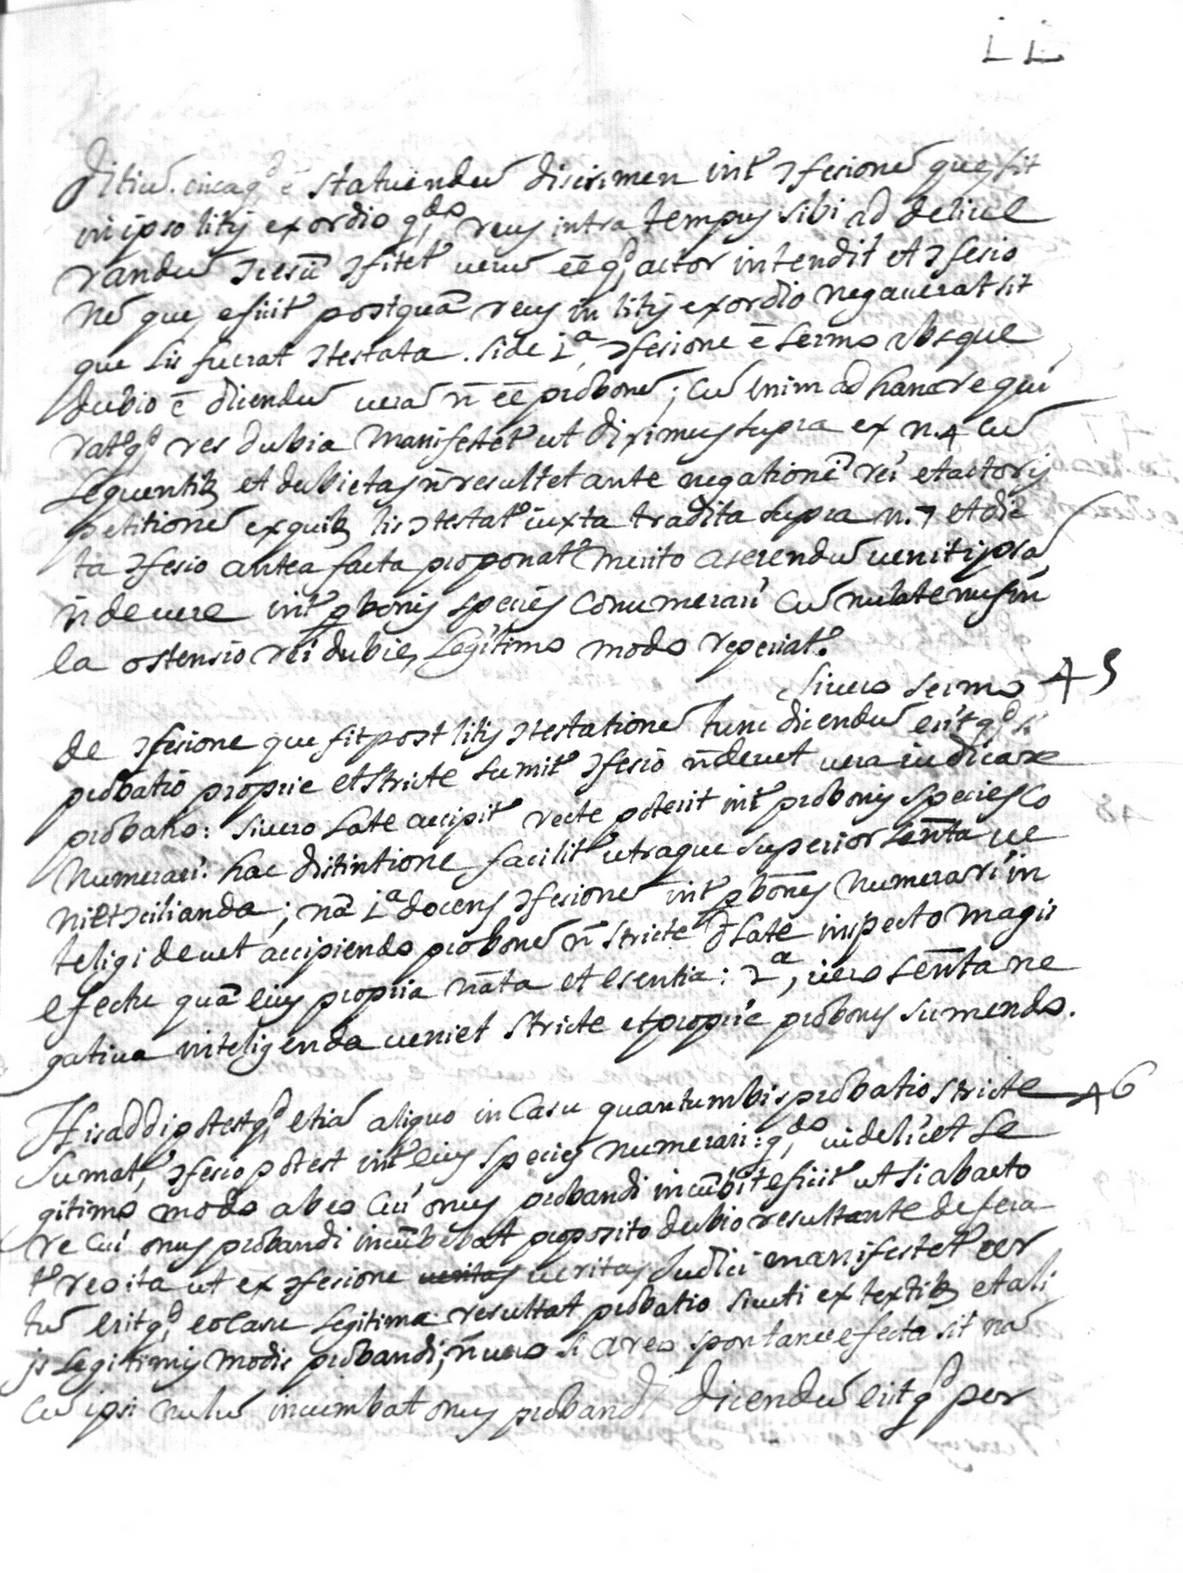 LL
ditiu. circa q̃d ẽ statuendũ discrimen int.r ↄfesionẽ que, fit
in ipso litis exordio q.do reus intra tempus sibi ad delive
randũ ↄcesũ ↄfitet.r verũ eẽ q.d actor intendit et ↄfesio
nẽ que, efficit.r postquã reus in litis exordio negaverat sit
que lis fuerat ↄtestata. side 1.a ↄfesione ẽ sermo absque
dubio ẽ dicendũ verã ñ eẽ prõbonẽ; cũ enim ad hanc requi
rat.r q.d res dubia manifestet.r ut diximus supra ex n. 4 cũ
sequentib, et dubietas ñ resultet ante negationẽ rei et actoris
petitionẽ ex quib, lis ↄtestat.r iuxta tradita supra n. 7 et dic
ta ↄfesio antea facta proponat.r merito aserendũ venit ipsã
ñ de vere int.r p̃bonis species conumerari cũ nulatenus in
la ostensio rei dubie, legitimo modo reperiat.r
Si vero sermo 45
de ↄfesione que fit post litis ↄtestationẽ tunc dicendũ erit q.d si
prõbatio proprie et stricte sumit.r ↄfesio ñ devet vera iudicare
prõbatio: si vero late accipit.r recte poterit int.r prõbonis species co
numerari. hac distintione facilit.r utraque superior senta ve
niet ↄcilianda; nã 1.a docens ↄfesionẽ int.r p̃bones numerari in
teligi devet accipiendo prõbonẽ ñ stricte s.d late inspecto magis
efectu quã eius propria nãta et esentia: 2.a, vero senta ne
gativa inteligenda veniet stricte et proprie prõbones sumendo.
His addi potest q.d etiã aliquo in casu quantumbis prõbatio stricte 46
sumat.r, ↄfesio potest int.r eius species numerari: q.do videlicet le
gitimo modo ab eo cui onus prõbandi incũbit eficit.r ut si ab acto
re cui onus prõbandi incũbebat proposito dubio resultante defera
t.r reo ita ut ex ↄfesione veritas veritas Judici manifestet.r cer
tũ erit q.d eo casu legitima resultat prõbatio sicuti ex textib, et ali
js legitimis modis prõbandi; ñ vero si a reo spontanee facta sit nã
cũ ipsi nulũ incumbat onus prõbandi dicendũ erit q.d per